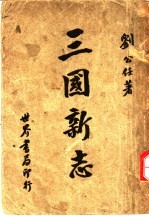 劉公任著
三國新志
世界書局印行